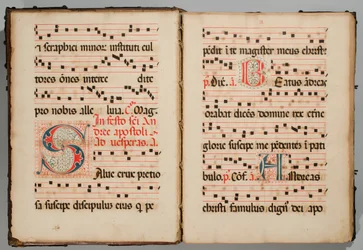 i seraphici minor instituti cul
tores ōnes interce dite
pro nobis alle luia. C. Mag.
In festo sci An
dree apostoli
Ad vesperas. a.
Salve crux pretio
sa suscipe discipulus eius q pe
pēdit ī te magister meus christꝰ
p. Dix̄. a. Beatus ādreas
orabat dicēs domine rex etne
glorie suscipe me pēdentē ī pati
bulo. p. Cōf. a. Andreas
christi famulus dignꝰ dei apo